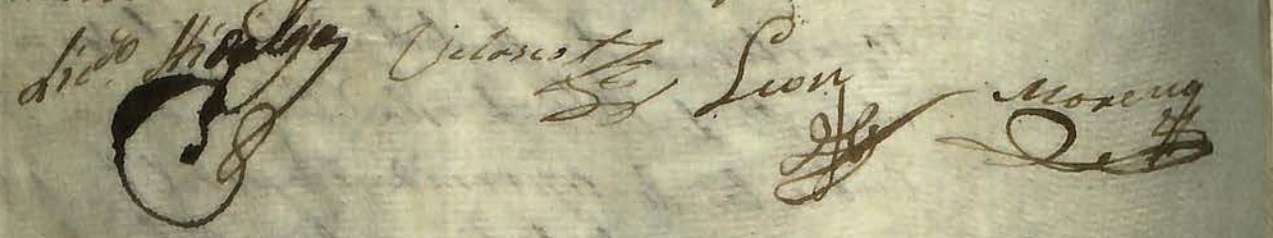 Licdo. Hidalgo Velarest Leon Moreno